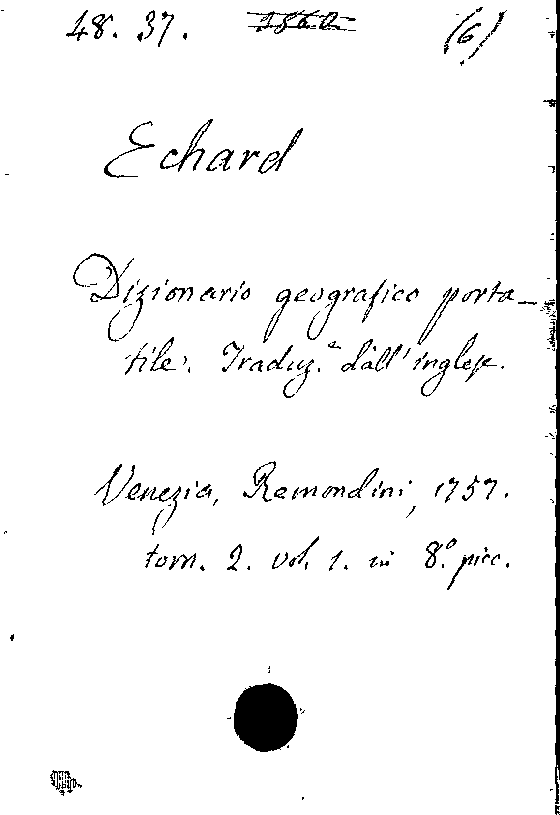 48. 37. (6)
Echard
Dizionario geografico porta-
tile. Traduz.e dall'inglese.
Venezia, Remondini, 1757.
tom. 2. vol. 1. in 8.° picc.